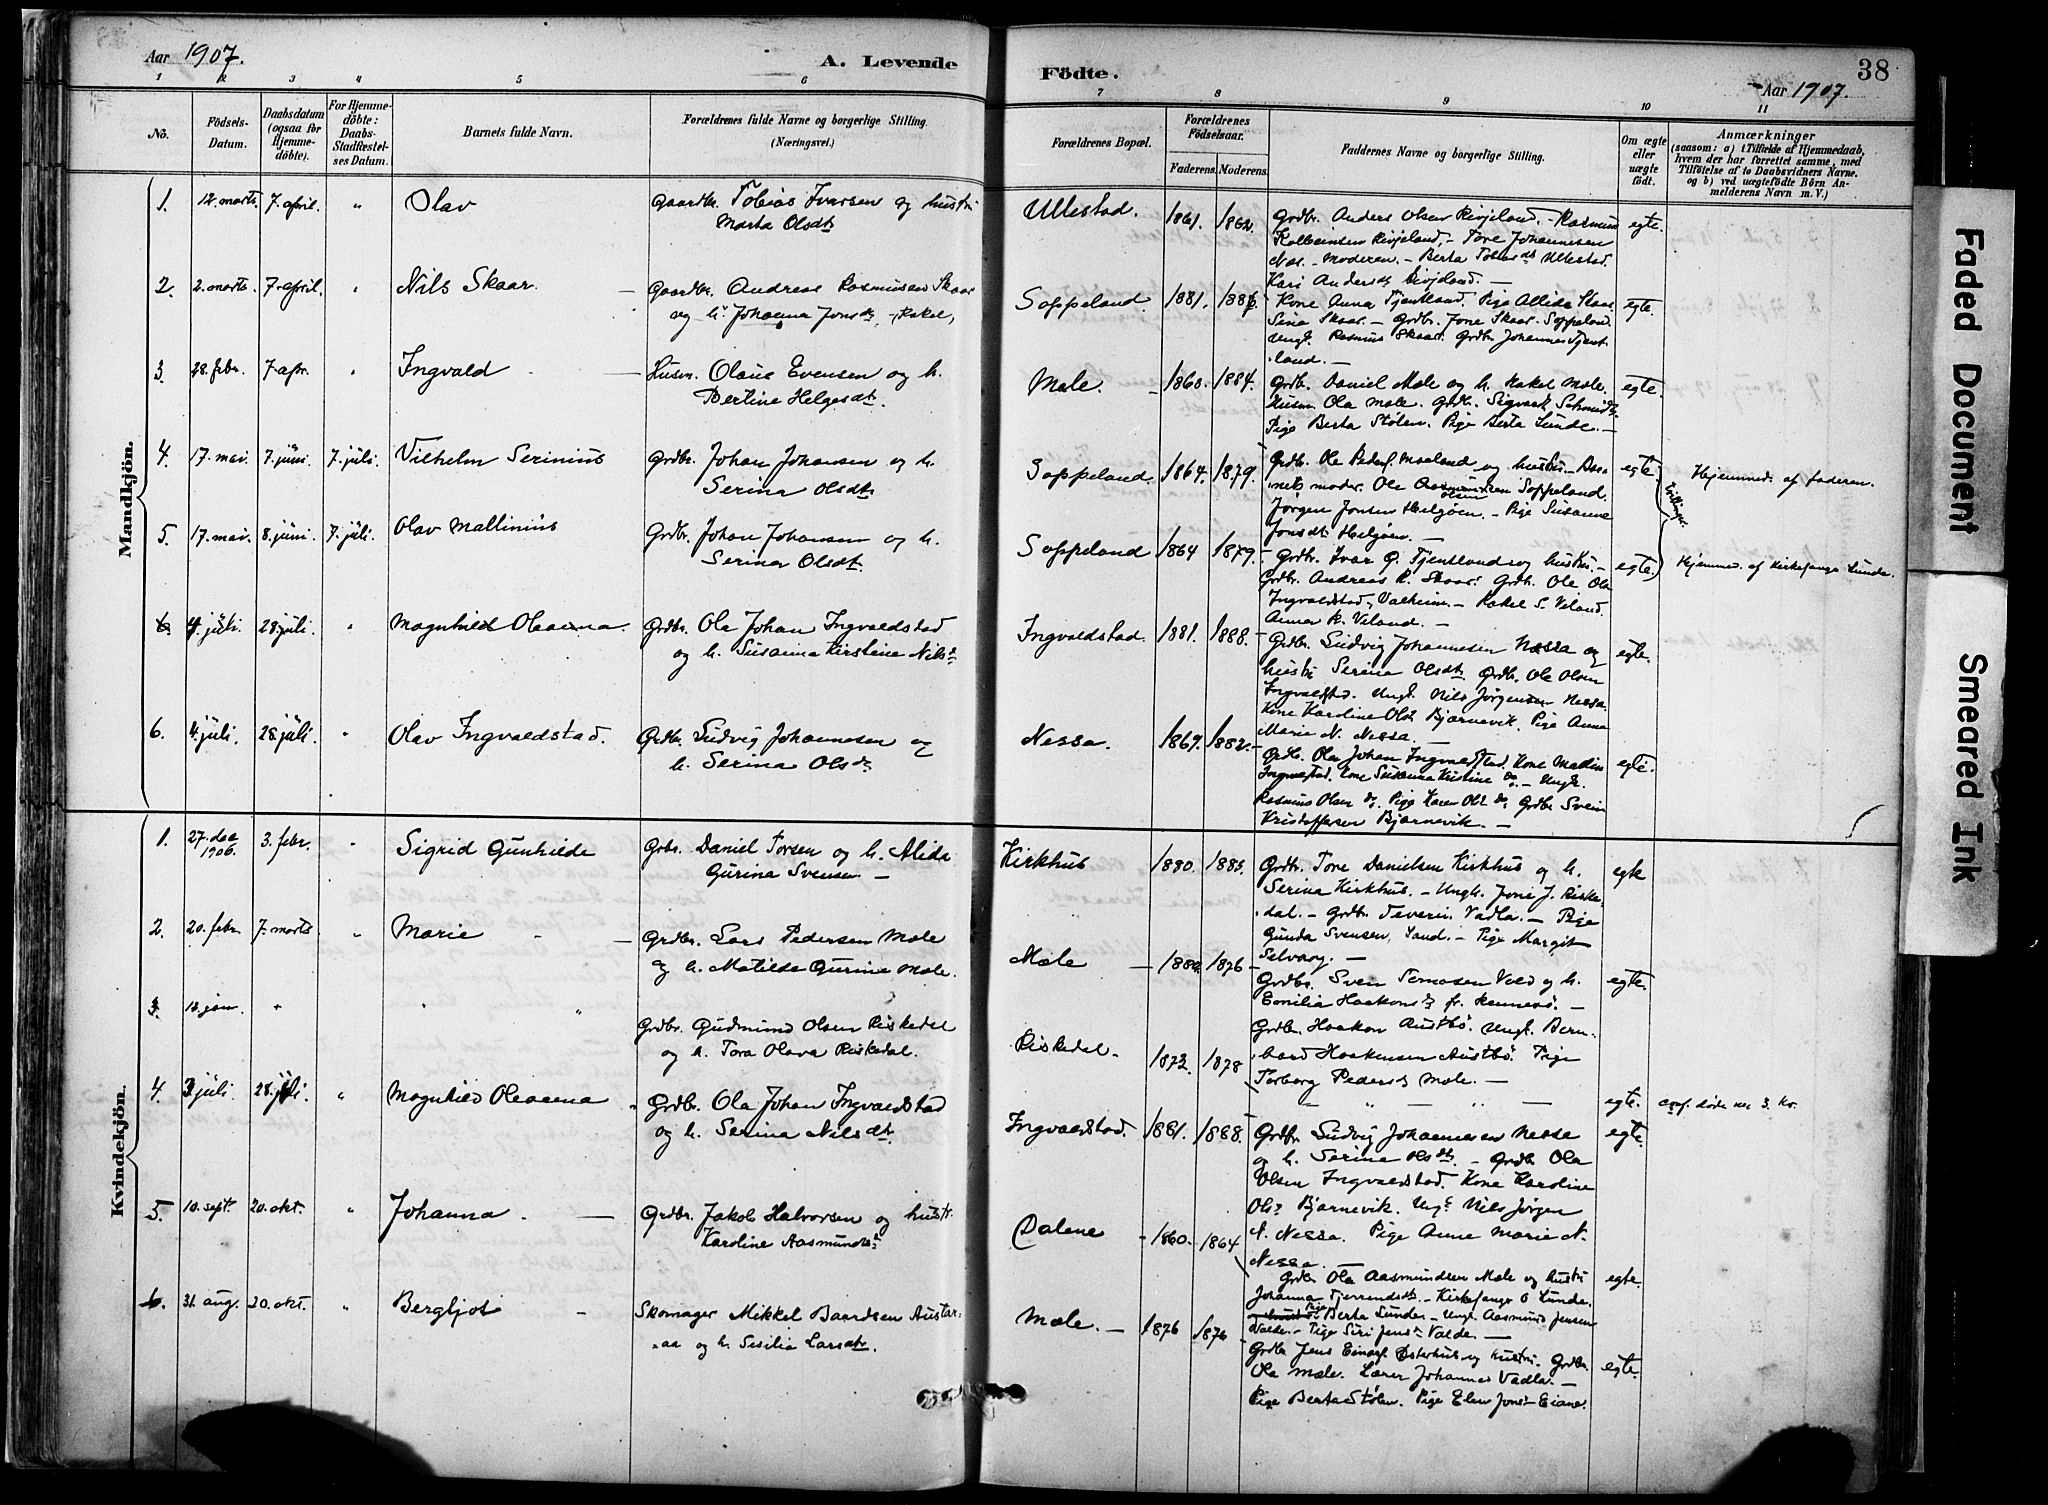 Aar 1907.
A. Levende
Födte.
38
Aar 1907.
1 2 3 " 5 6 7 8 9 10 11
No.
Födsels-
Datum.
Daabsdatum
(ogsaa for
Hjemme-
döbte).
For Hjemme-
döbte:
Daabs-
Stadfæstel-
ses Datum.
Barnets fulde Navn.
Forældrenes fulde Navne og borgerlige Stilling.
(Næringsvei.)
Forældrenes Bopæl.
Forældrenes
Födselsaar.
Faderens. Moderens.
Faddernes Navne og borgerlige Stilling.
Om ægte
eller
uægte
födt.
Anmærkninger
(saasom: a) i Tilfælde af Hjemmedaab,
hvem der har forrettet samme, med
Tilföielse af to Daabsvidners Navne.
og b) ved uægtefödte Börn An-
melderens Navn m. V.)
Mandkjön.
1. 12. marts. 7. april. " Olav
Gaardbr. Tobias Ivarsen og hustru
Marta Olsdt.
Ullestad. 1861. 1862.
Grdbr. Anders Olsen Rivjeland. - Rasmus
Kolbeinsen Rivjeland, - Tore Johannesen
Næs. - Moderen. - Berta Tobiasdt Ullestad.
Kari Andersdt Rivjeland. -
egte.
2. 2. marts. 7. april. " Nils Skaar.
Gaardbr. Andreas Rasmusen Skaar
og h. Johanna Jonsdt,
Soppeland. 1881.
Kone Anna Tjentland. Pige Allida Skaar
Sina Skaar. - Grdbr. Jone Skaar. Soppeland.
Ungk. Rasmus Skaar. Grdbr Johannes Tjent-
land. -
egte.
3. 28. febr. 7. apr. " Ingvald
Husm. Olaus Evensen og h.
Bertine Helgesdt.
Mæle. 1884.
Grdbr. Daniel Mæle og h. Rakel Mæle.
Husm Ola Mæle. Grdbr. Sigvart Schmidt.
Pige Berta Stølen. Pige Berta Lunde. -
egte.
4. 17. mai. 7. juni. 7. juli. Vilhelm Serinius
Grdbr. Johan Johansen og h.
Serina Olsdt.
Soppeland 1864. 1879.
Grdbr. Ole Peders. Maaland og hustru. - Bar-
nets moder. Ole Aasmundsen Soppeland.
Jørgen Jonsen Helgøen. - Pige Susanne
Jonsdt. Helgøen. -
egte. Hjemmed. af faderen.
Tvillinger.
5. 17. mai. 8. juni. 7. juli. Olav Mallinius
Grdbr. Johan Johansen og h.
Serina Olsdt.
Soppeland 1864 1879.
Grdbr. Ivar G. Tjentland og hustru. -
Grdbr. Andreas R. Skaar. Grdbr. Ole Ols
Ingvaldstad, Valheim. - Rakel S. Veland.
Anna R. Veland. -
egte. Hjemmed. af Kirkesanger Lunde.
6. 4. juli. 28. juli. " Magnhild Oleanna.
Grdbr. Ola Johan Ingvaldstad
og h. Susanna Kirstine Nilsdt
Ingvaldstad. 1881. 1888.
Grdbr. Ludvig Johannesen Nessa og
hustru Serina Olsdt. Grdbr. Ole Olsen
Ingvaldstad. Ungk. Nils Jørgensen Nessa
Kone Karoline Olsdt Bjørnevik. Pige Anna
Marie N. Nessa. -
egte.
6. 4. juli. 28. juli. " Olav Ingvaldstad.
Grdbr. Ludvig Johannesen og
h. Serina Olsdt.
Nessa. 1882.
Grdbr. Ola Johan Ingvaldstad. Kone
Ingvaldstad. Kone Susanna Kristine do. - Ungk.
Rasmus Olsen do. Pige Karen Olsdt do. Grdbr Svein
Kristoffersen Bjørnevik. -
egte.
Kvindekjön.
1. 27. dec. 1906. 3. febr. " Sigrid Gunhilde
Grbr. Daniel Torsen og h. Alida
Gurina Svensen -
Kirkhus 1880. 1885.
Grdbr. Tore Danielsen Kirkhus og h.
Serina Kirkhus. - Ungk. Jone J. Riske-
dal. - Grdbr. Severin Vadla. - Pige
Gunda Svensen, Sand. - Pige Margit
Selvaag. -
egte
2. 20. febr. 7. marts. " Marie
Grdbr. Lars Pedersen Mæle
og h. Matilde Gurine Mæle.
Mæle 1876
Grdbr. Sven Tomasen Vold og h.
Emilia Haakonsdt fr. Rennesø. -
Grdbr. Haakon Austbø. Ungk. Bern-
hard Haakonsen Austbø. Pige
Torborg Pedersdt Mæle. -
egte.
3. 12. jan. " " "
Grdbr. Gudmund Olsen Riskedal
og h. Tora Olava Riskedal.
Riskedal. 1872. 1878
egte. conf. døde no 3. Kv.
4. 3 juli. 28. juli. " Magnhild Oleanna
Grdbr. Ola Johan Ingvaldstad
og h. Serina Nilsdt.
Ingvaldstad. 1881. 1888.
Grdbr. Ludvig Johannesen Nessa
og h. Serine Olsdt. - Grdbr. Ola
Olsen Ingvaldstad. Kone Karoline
Olsdt Bjørnevik. Ungk Nils Jørgen
N. Nessa. Pige Anne Marie N.
Nessa. -
egte.
5. 10. sept. 20. okt. " Johanna.
Grdbr. Jakob Halvorsen og hustr.
Karoline Aasmundsdt
Dalene 1860. 1864
Grdbr Ola Aasmundsen Mæle og hustru
Johanna Tjerrandsdt. - Kirkesanger O Lunde.
Pige Berta Lunde. - Ungk. Aasmund Jensen
Valde. - Pige Siri Jensdt Valde. -
egte.
6. 31. aug. 20. okt. " Bergljot
Skomager Mikkel Baardsen Austar-
aa og h. Sesilia Larsdt.
Mæle. 1876 1876
Grdbr Jens Einars. Østerhus og hustru. Grdbr.
Ola Mæle. Lærer Johannes Vadla. -
Pige Berta Stølen. Pige Elen Jonsdt Eiane.
egte.
Faded Document
Smeared Ink